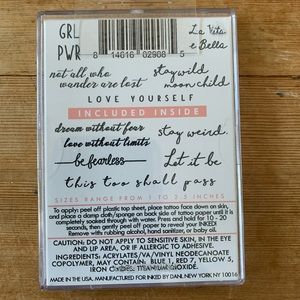 GRL
PWR
La Vita
e Bella
8 14616 02908 5
not all who
wander are lost
stay wild
moon child
LOVE YOURSELF
INCLUDED INSIDE
dream without fear
love without limits
stay weird.
be fearless
Let it be
this too shall pass
SIZES RANGE FROM 1 TO 2.5 INCHES
To apply: peel off plastic top sheet, place tattoo face down on skin,
and place a damp cloth/sponge on back side of tattoo paper until it is
completely soaked through with water. Press and hold for 10 - 20
seconds, then gently peel off paper to reveal your INKED
Remove with rubbing alcohol, sanitizer, or baby oil.
CAUTION: DO NOT APPLY TO SENSITIVE SKIN, IN THE EYE
AND LIP AREA, OR IF ALLERGIC TO ADHESIVE.
INGREDIENTS: ACRYLATES/VA/VINYL NEODECANOATE
COPOLYMER, MAY CONTAIN: BLUE 1, RED 7, YELLOW 5,
IRON OXIDES, TITANIUM DIOXIDE.
MADE IN THE USA, MANUFACTURED FOR INKED BY DANI, NEW YORK NY 10016